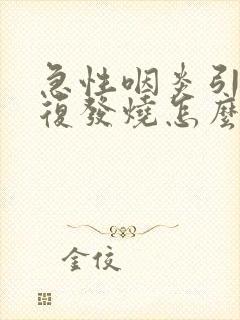 急性咽炎引
復發燒怎麼
金佼